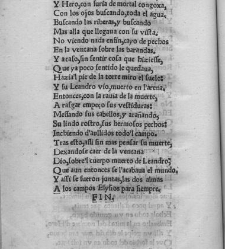 Y Hero, con furia de mortal congoxa,
Con los ojos buscando, toda el agua,
Buscando las riberas, y buscando
Mas alla que llegaua con su vista,
No viendo nada enfin, cayo de pechos
En la ventana sobre las barandas,
Y acaso, sin sentir cosa que hiziesse,
Que ya poco sentido le quedaua,
Hazia'l pie de la torre miro el suelo:
Y su Leandro vio, muerto en l'arena,
Entonces, con la rauia de la muerte,
A rasgar empeço sus vestiduras:
Messando sus cabellos, y arañando,
Su lindo rostro, sus hermosos pechos:
Inchiendo d'aullidos todo'l campo.
Tras esto, assi sin mas pensar su muerte,
Dexandose caer de la ventana
Dio, sobre'l cuerpo muerto de Leandro:
Que aun entonces se l'acabaua el mundo,
Y assi se fueron juntas, las dos almas
A los campos Elysios para siempre.
FIN.